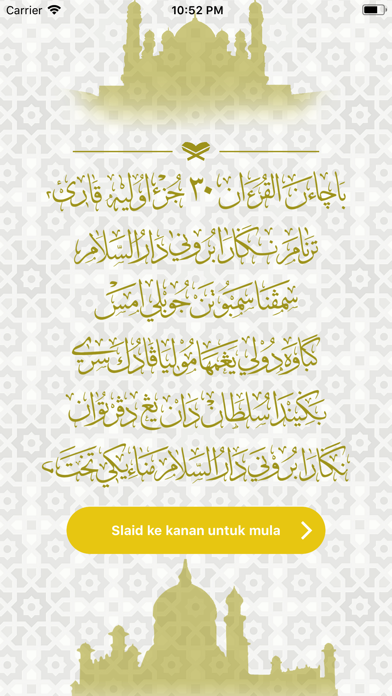 Carrier 10:52 PM
باچاءن القرءان ٣٠ جزء اوليه قارئ٢
ترنام نݢارا بروني دارالسلام
سمڤنا سمبوتن جوبلي امس
کباوه دولي يڠمهاموليا ڤادوک سري
بݢيندا سلطان دان يڠ دڤرتوان
نݢارا بروني دارالسلام مناءيکي تخت
Slaid ke kanan untuk mula